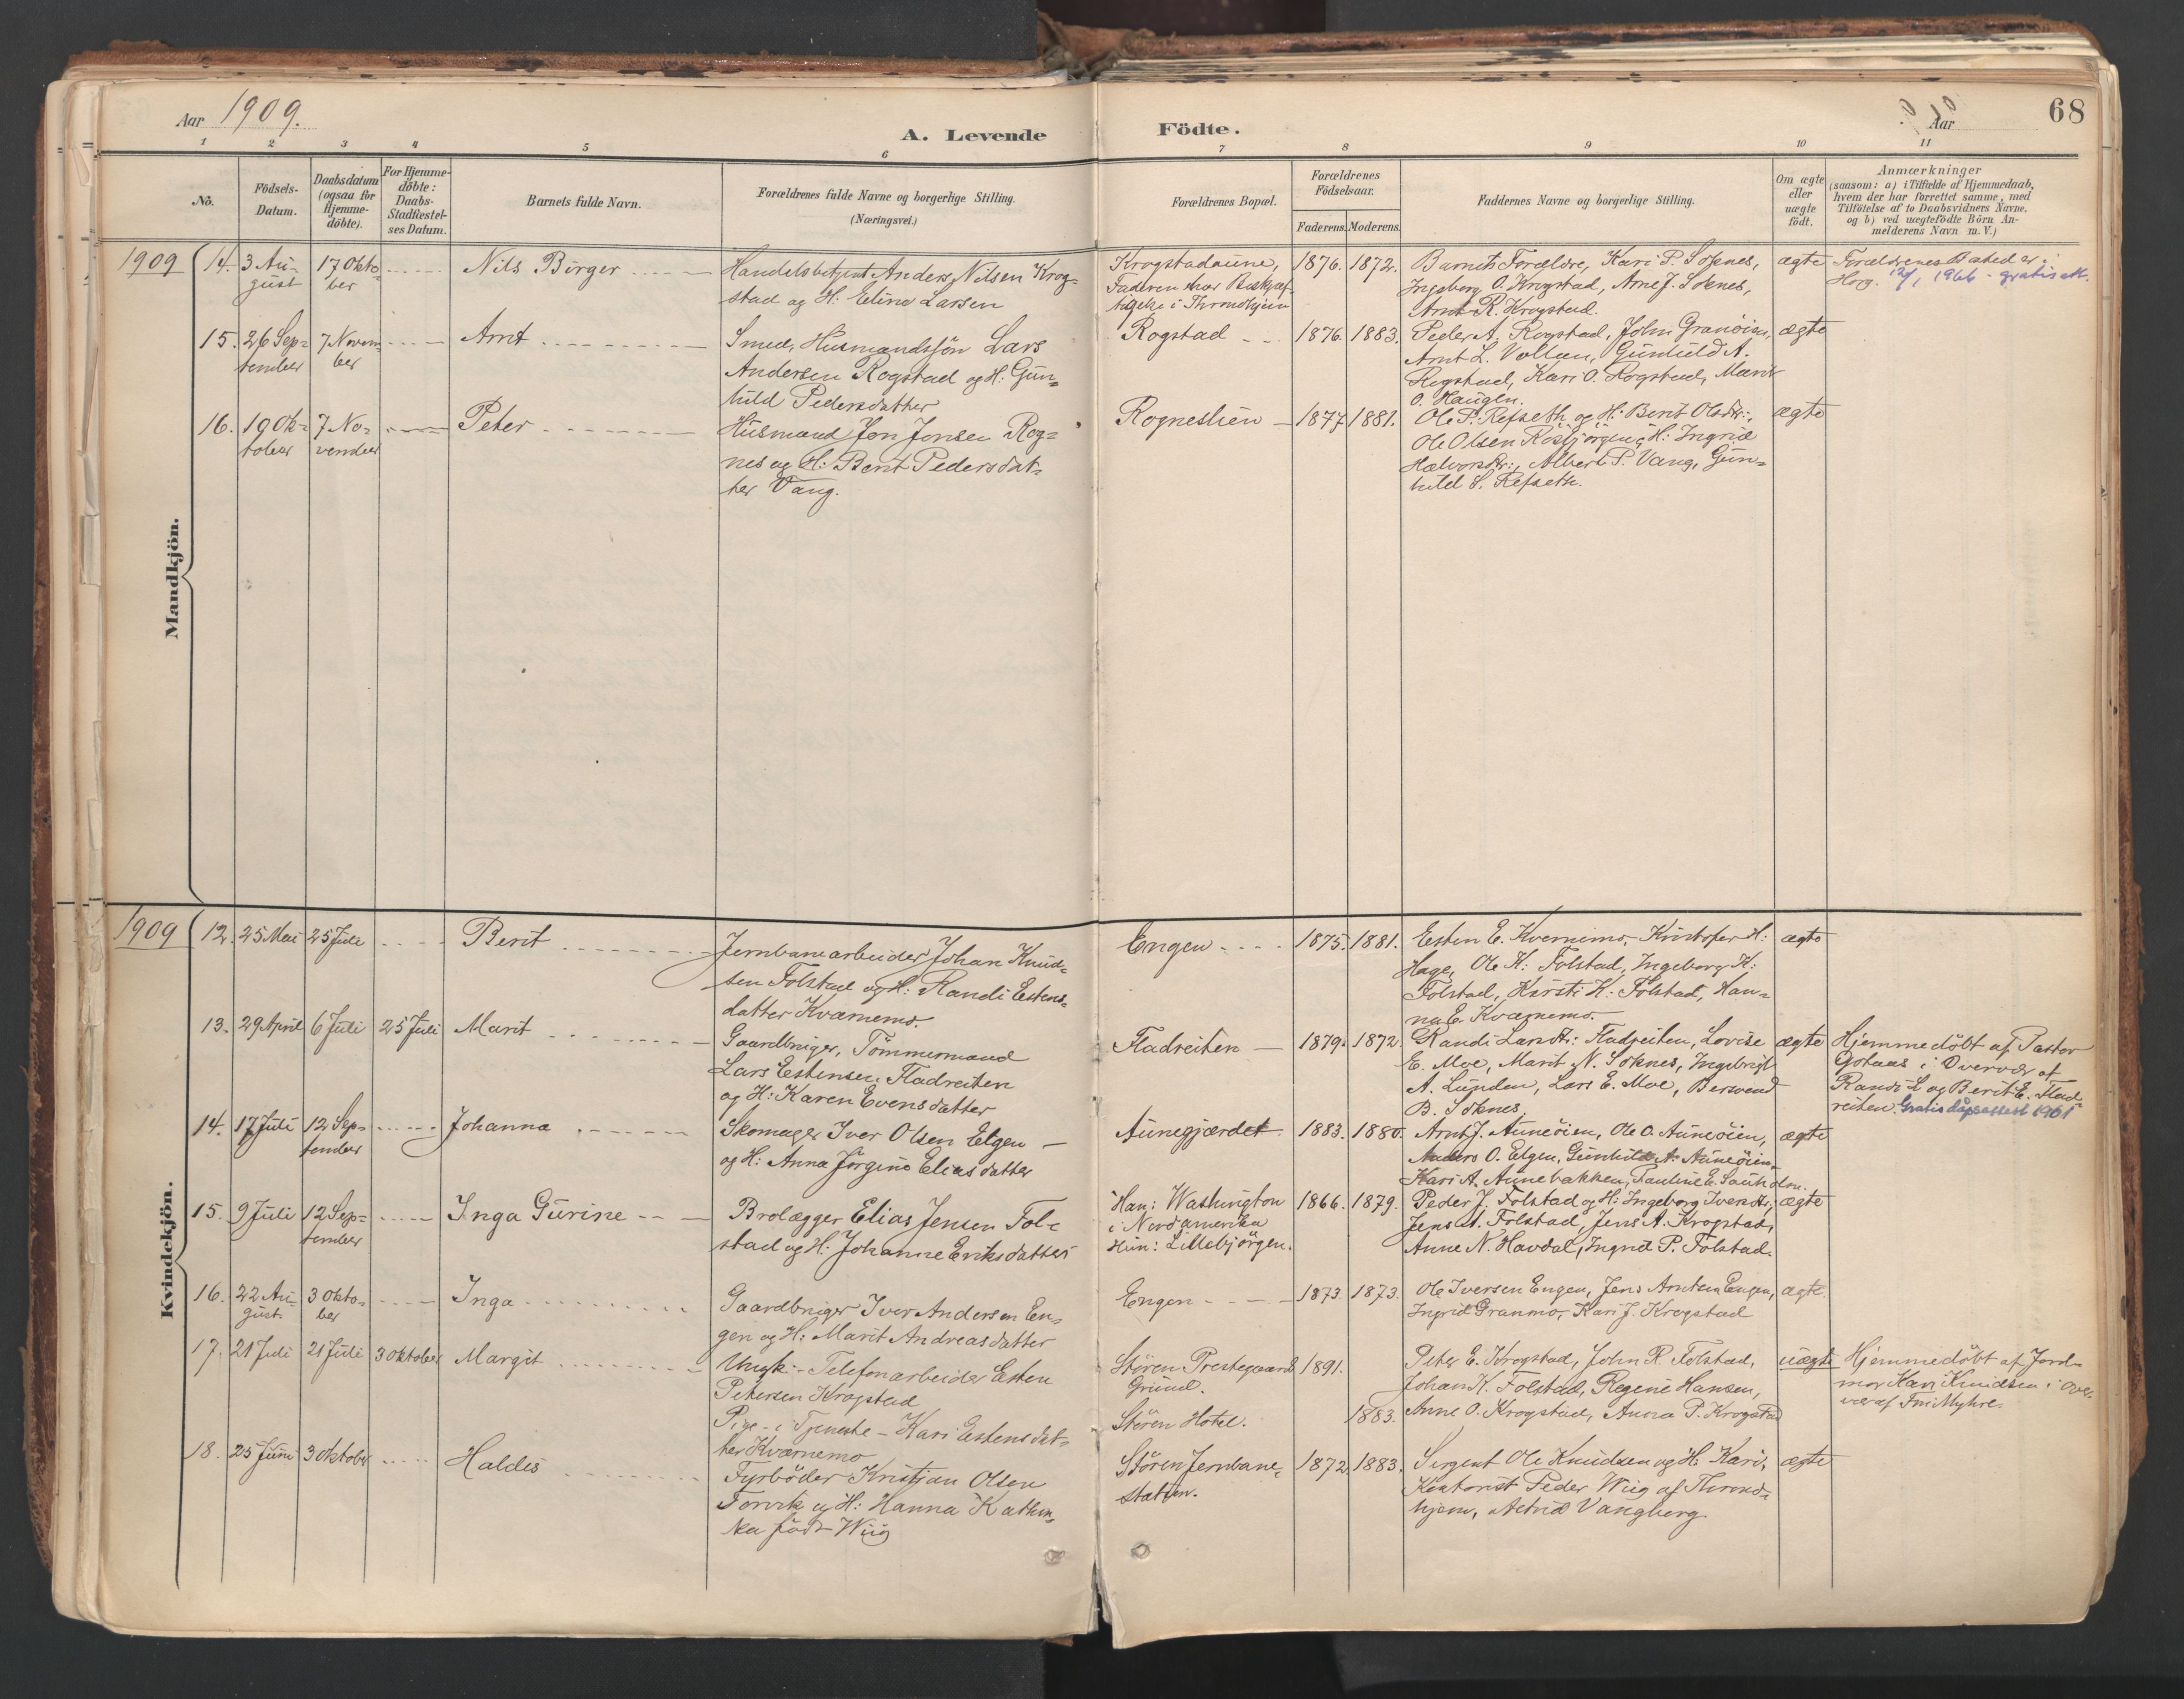 Aar 1909.
A. Levende Födte.
Aar
68
1 2 3 4 5 6 7 8 9 10 11
No.
Födsels-
Datum.
Daabsdatum
(ogsaa for
Hjemme-
döbte).
For Hjemme-
döbte:
Daabs-
Stadfæstel-
ses Datum.
Barnets fulde Navn.
Forældrenes fulde Navne og borgerlige Stilling.
(Næringsvei.)
Forældrenes Bopæl.
Forældrenes
Födselsaar.
Faderens. Moderens.
Faddernes Navne og borgerlige Stilling.
Om ægte
eller
uægte
födt.
Anmærkninger
(saasom: a) i Tilfælde af Hjemmedaab,
hvem der har forrettet samme, med
Tilföielse af to Daabsvidners Navne,
og b) ved uægtefödte Börn An-
melderens Navn m. V.)
Mandkjön.
1909
14. 3 Au-
gust
17 Okto-
ber
Nils Birger
Handelsbetjent Anders Nilsen Krog-
stad og H. Eline Larsen
Krogstadaune,
Faderen har Beskjæf-
tigelse i Throndhjem
1876. 1872.
Barnets Forældre, Kari P. Soknes,
Ingeborg O. Krogstad, Arne J. Soknes,
Arnt R. Krogstad.
ægte
Forældrenes Bosted er i
Horg. 12/1 1966 - gratis att.
15. 26 Sep-
tember
7 Novem-
ber
Arnt
Smed, Husmandssön Lars
Andersen Rogstad og H: Gun-
hild Pedersdatter
Rogstad
1876. 1883.
Peder A. Rogstad, John Granöien,
Arnt L. Vollan, Gunhild A.
Rogstad, Kari O. Rogstad, Marit
O. Haugen.
ægte
16. 19 Ok-
tober
7 No-
vember
Peter
Husmand Jon Jonsen Rog-
nes og H: Berit Pedersdat-
ter Vang.
Rogneslien
1877. 1881.
Ole P. Refseth og H: Berit Olsdtr:,
Ole Olsen Rosbjörgen, H: Ingrid
Halvorsdtr:, Albert P. Vang, Gun-
hild S. Refseth.
ægte
Kvindekjön.
1909
12. 25 Mai 25 Juli
Berit
Jernbanearbeider Johan Knud-
sen Folstad og H: Randi Estens-
datter Kværnemo.
Engen
1875. 1881.
Esten E. Kvernemo, Kristofer H:
Hage, Ole K: Folstad, Ingeborg K:
Folstad, Kirsti K: Folstad, Han-
na E. Kværnemo.
ægte
13. 29 April 6 Juli 25 Juli
Marit
Gaardbruger, Tömmermand
Lars Estensen Fladreiten
og H: Karen Evensdatter
Fladreiten
1879. 1872.
Randi Larsdtr: Fladreiten, Lovise
E. Moe, Marit N. Soknes, Ingebrigt
A. Lunden, Lars E. Moe, Bersvend
B. Soknes.
ægte
Hjemmedöbt af Pastor
Götaas i Overvær af
Randi L og Berit E. Flad-
reiten. Gratis dåpsattest 1961
14. 17 Juli 12 Sep-
tember
Johanna
Skomager Iver Olsen Elgen
og H: Anna Jörgine Eliasdatter
Aunegjærdet
1883. 1880.
Arnt J. Auneöien, Ole O. Auneöien,
Anders O. Elgen, Gunhild A. Auneöien,
Kari A. Aunebakken, Pauline E.
ægte
15. 9 Juli 12 Sep-
tember
Inga Gurine
Brolægger Elias Jensen Fol-
stad og H: Johanne Eriksdatter
Han: Washington
i Nordamerika
Hun: Lillebjörgen.
1866. 1879.
Peder J. Folstad og H: Ingeborg Iversdtr;
Jens M. Folstad, Jens A. Krogstad,
Anne N. Havdal, Ingrid P. Folstad.
ægte
16. 22 Au-
gust.
3 Okto-
ber
Inga
Gaardbruger Iver Andersen En-
gen og H: Marit Andreasdatter
Engen
1873. 1873.
Ole Iversen Engen, Jens Arntsen Engen,
Ingrid Granmo, Kari J. Krogstad
ægte.
17. 21 Juli 21 Juli 3 Oktober
Margit
Ungk. - Telefonarbeider Esten
Petersen Krogstad
Pige - i Tjeneste - Kari Estensdat-
ter Kværnemo
Stören Prestegaards
Grund.
Stören Hotel.
1891.
1883.
Peter E. Krogstad, John R. Folstad,
Johan K. Folstad, Regine Hansen,
Anne O. Krogstad, Anna P. Krogstad
uægte
Hjemmedöbt af Jord-
mor Kari Knudsen i Over-
vær af Fru Myhre.
18. 25 Juni 3 Oktober
Haldis
Fyrböder Kristian Olsen
Torvik og H: Hanna Kathin-
ka födt Wiig
Stören Jernbane-
station.
1872. 1883.
Sergent Ole Knudsen og H. Kari,
Kontorist Peder Wiig af Thrond-
hjem, Astrid Vangberg.
ægte